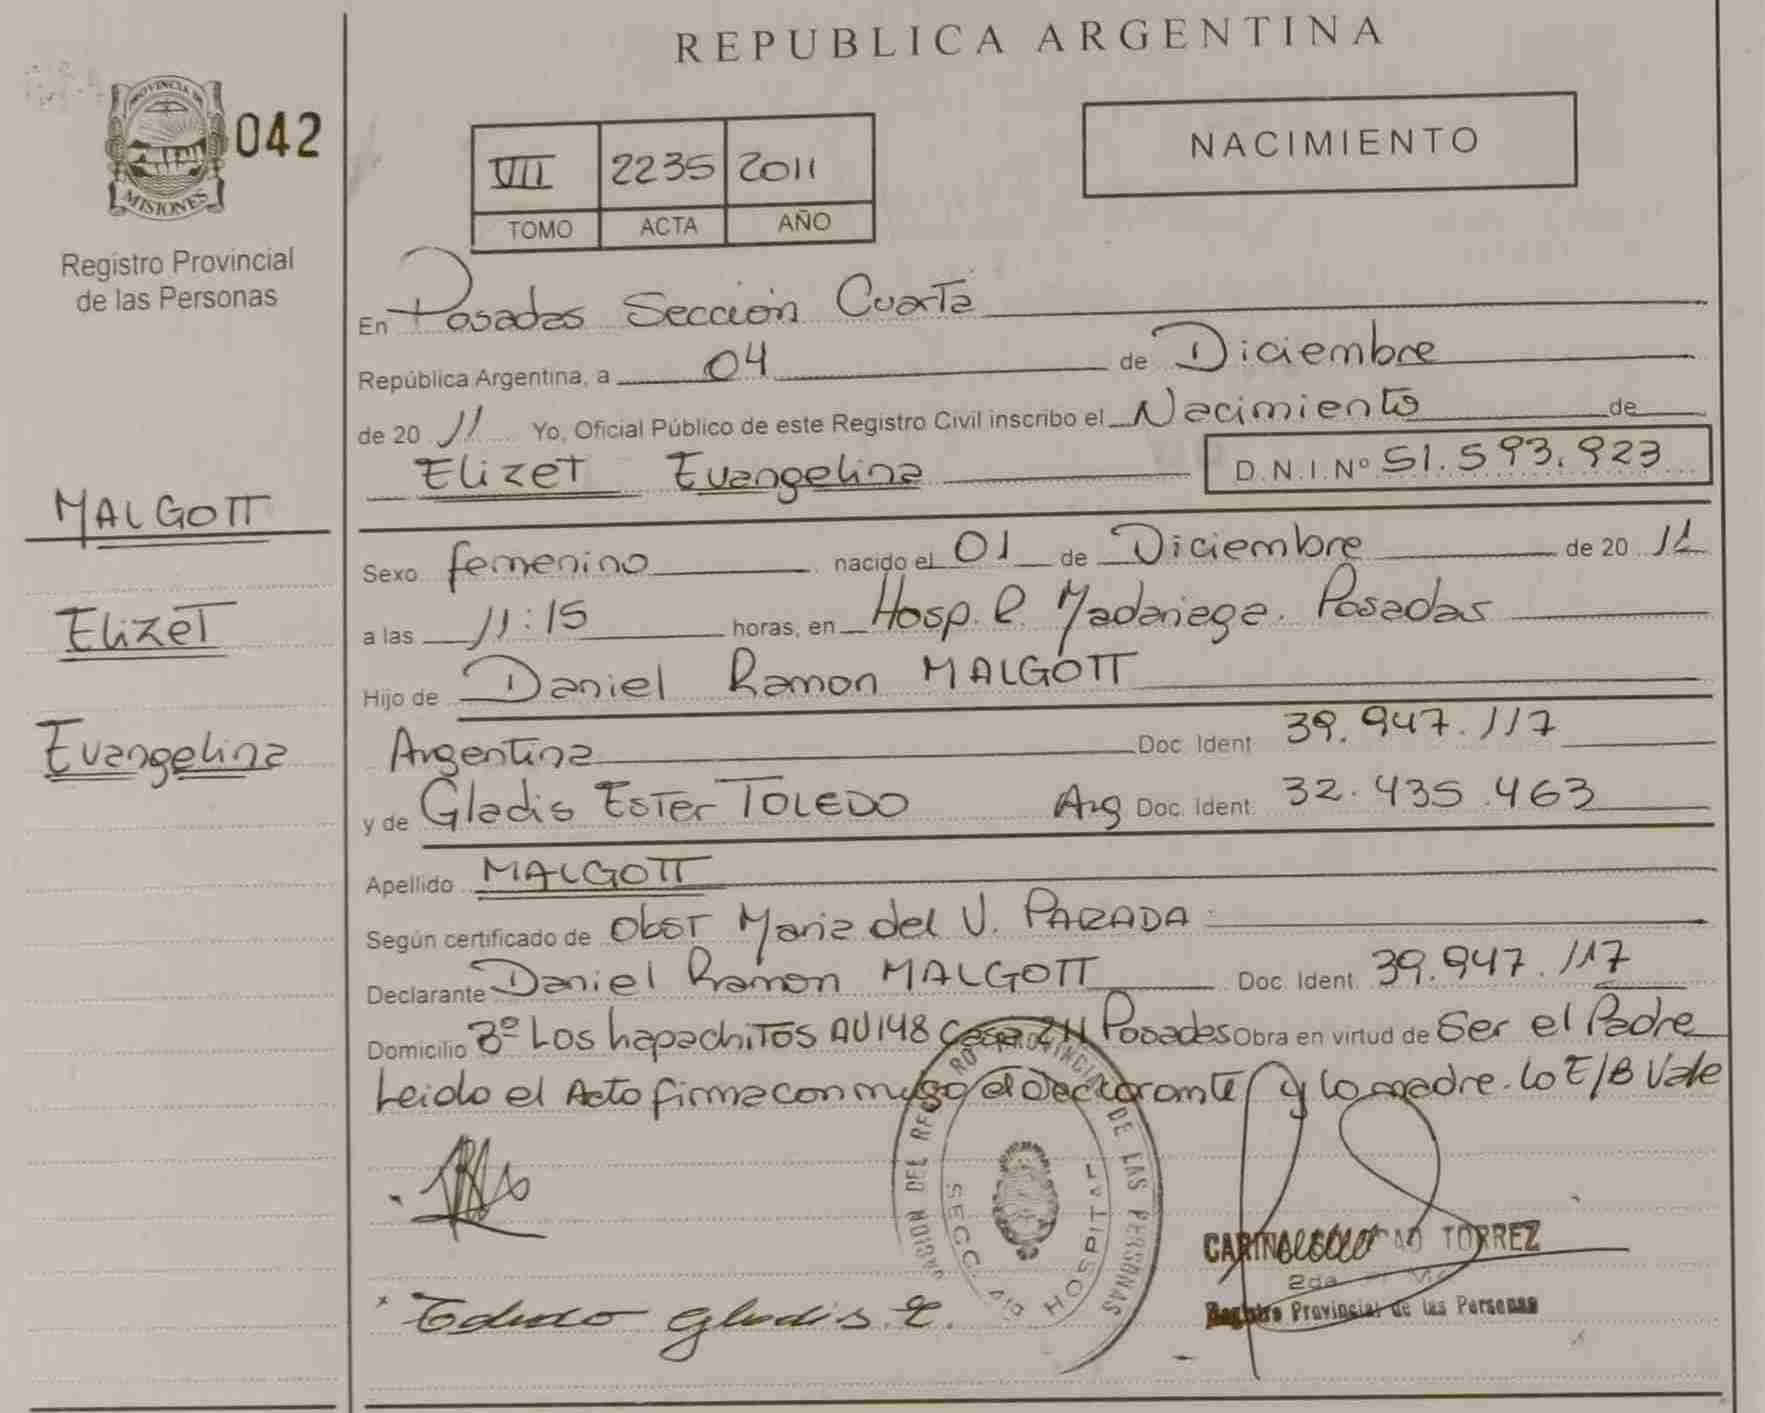 REPUBLICA ARGENTINA
PROVINCIA DE
MISIONES
042
Registro Provincial
de las Personas
VII 2235 2011
TOMO ACTA AÑO
NACIMIENTO
En Posadas Sección Cuarta
República Argentina, a 04 de Diciembre
de 20 11 Yo, Oficial Público de este Registro Civil inscribo el Nacimiento de
Elizet Evangelina D.N.I.Nº 51.593.923
MALGOTT
Elizet
Evangelina
Sexo femenino nacido el 01 de Diciembre de 20 11
a las 11:15 horas, en Hosp. R. Madariaga. Posadas
Hijo de Daniel Ramon MALGOTT
Argentina Doc. Ident 39.947.117
y de Gladis Ester TOLEDO Arg Doc. Ident. 32.435.463
Apellido MALGOTT
Según certificado de Obst Maria del V. PARADA
Declarante Daniel Ramon MALGOTT Doc. Ident. 39.947.117
Domicilio Bº Los Lapachitos AV 148 Casa Posadas Obra en virtud de Ser el Padre
Leido el Acto firma conmigo el Declarante y la madre. lo E/B Vale
DEL REGISTRO PROVINCIAL DE LAS PERSONAS
SECC. 4ta HOSPITAL
Gladis E.
TORREZ
Registro Provincial de las Personas